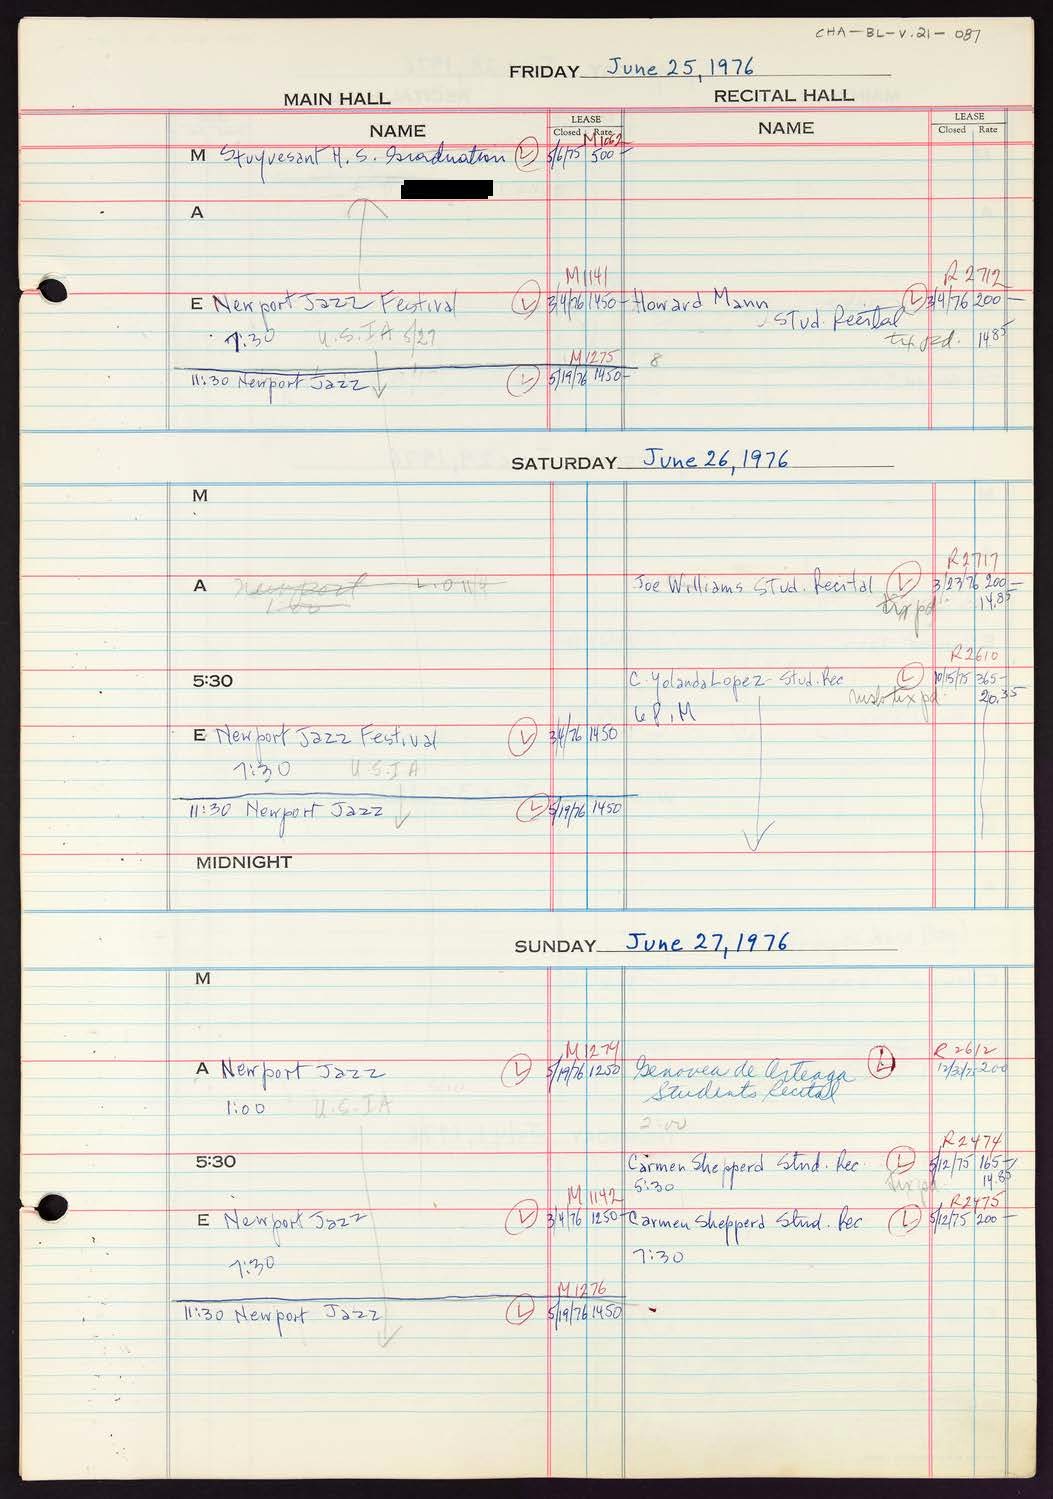 CHA-BL-V.21-087
FRIDAY June 25, 1976
MAIN HALL RECITAL HALL
NAME LEASE Closed Rate NAME LEASE Closed Rate
M 1062
M Stuyvesant H. S. Graduation L 5/6/75 500-
A
M 1141 R 2712
E Newport Jazz Festival L 3/4/76 1450- Howard Mann L 3/4/76 200-
Stud. Recital
7:30 U.S.IA 5/27 tix pd. 14.85
M 1275 8
11:30 Newport Jazz L 5/19/76 1450-
SATURDAY June 26, 1976
M
R 2717
A Newport Joe Williams Stud. Recital L 3/23/76 200-
1:00 tix pd. 14.85
R 2610
5:30 C. Yolanda Lopez- Stud. Rec L 10/15/75 365-
tix pd. 20.35
6 P.M
E Newport Jazz Festival L 3/4/76 1450
7:30 U.S.I A
11:30 Newport Jazz L 5/19/76 1450
MIDNIGHT
SUNDAY June 27, 1976
M
M 1274 R 2612
A Newport Jazz L 5/19/76 1250 Genovea de Arteaga L 12/3/75 200
Students Recital
1:00 U.S.IA
2:00
R 2474
5:30 Carmen Shepperd Stud. Rec. L 5/12/75 165-
5:30 tix pd. 14.85
M 1142 R 2475
E Newport Jazz L 3/4/76 1250- Carmen Shepperd Stud. Rec L 5/12/75 200-
7:30 7:30
M 1276
11:30 Newport Jazz L 5/19/76 1450